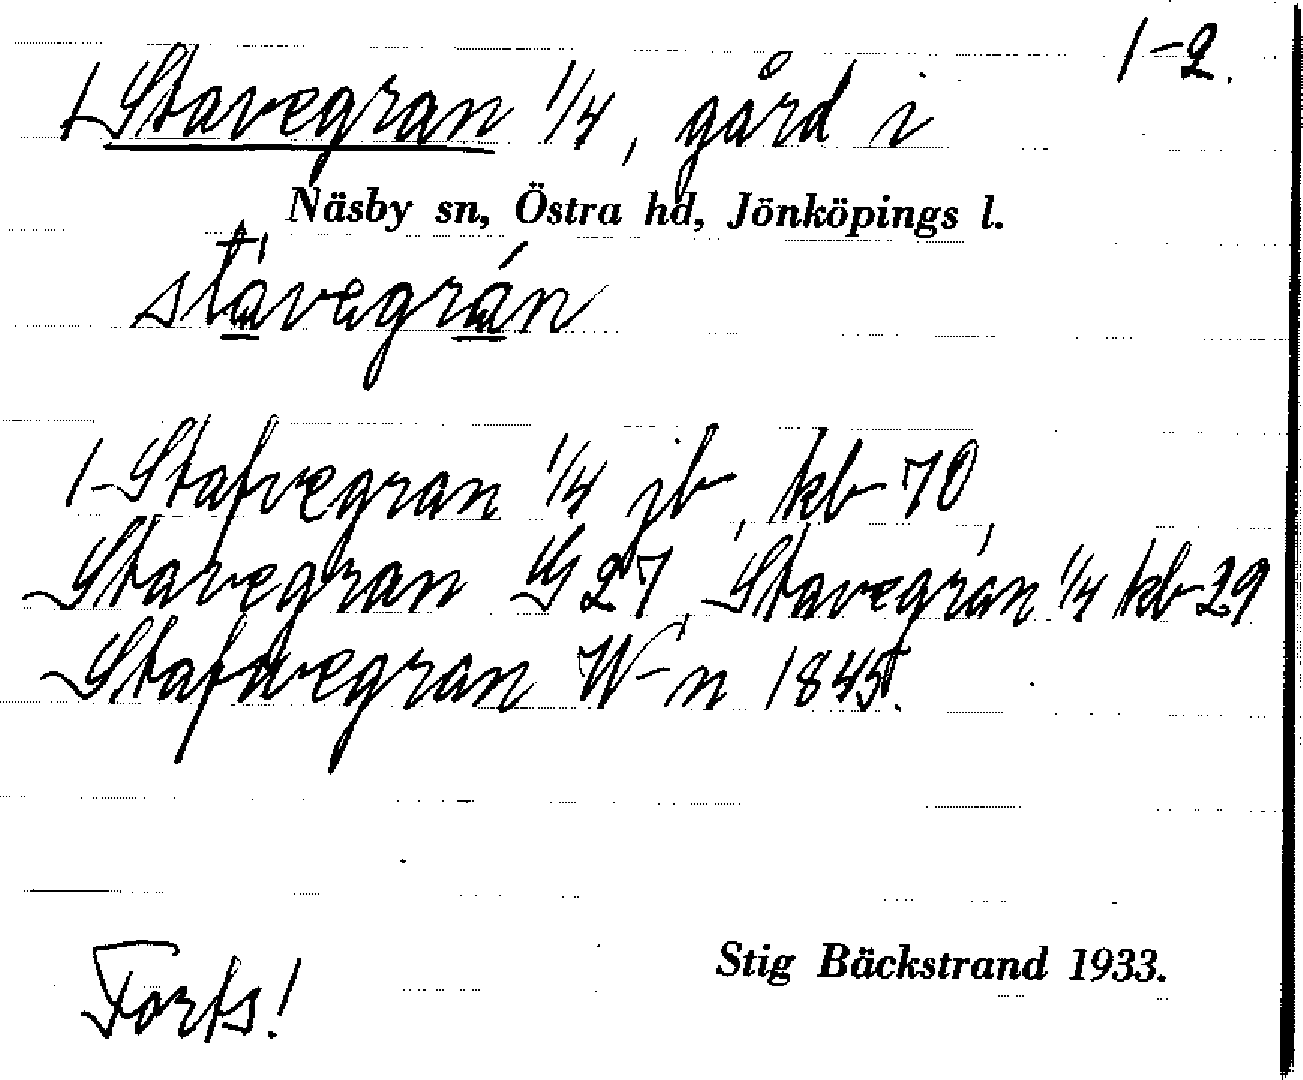 1-2.
1 Stavegran 1/4, gård i
Näsby sn, Östra hd, Jönköpings l.
stavegrán
1-Stafvegran 1/4 jb, kb 70,
Stavegran G 27, Stavegran 1/4 kb 29
Stafvegran W-n 1845.
Forts!
Stig Bäckstrand 1933.